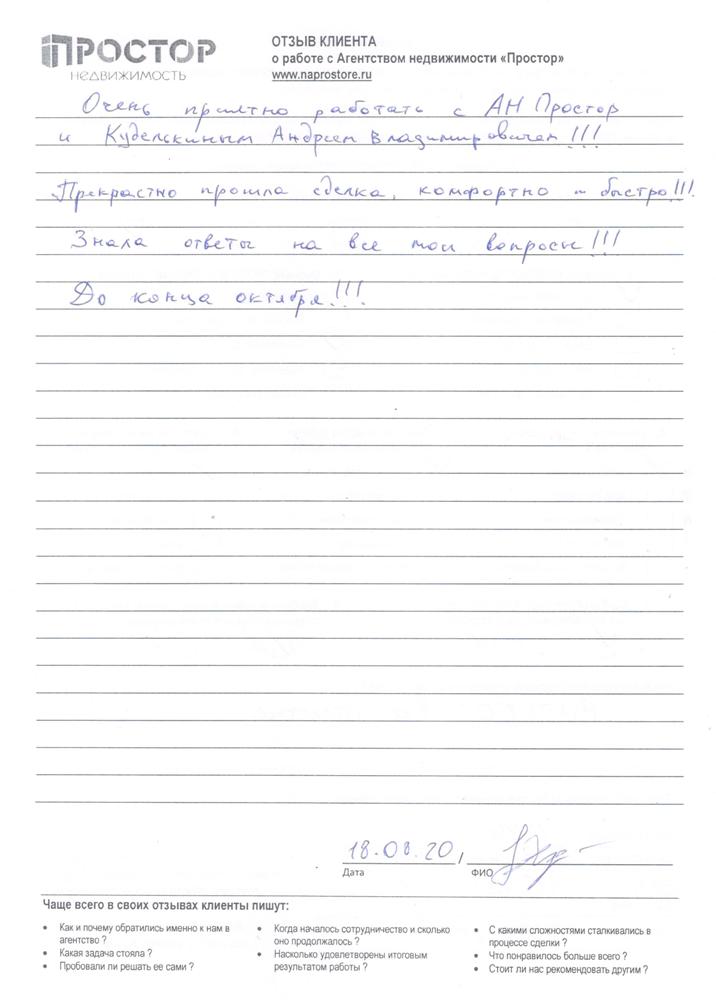 ПРОСТОР
НЕДВИЖИМОСТЬ
ОТЗЫВ КЛИЕНТА
о работе с Агентством недвижимости «Простор»
www.naprostore.ru
Очень приятно работать с АН Простор
и Кудельскиным Андреем Владимировичем!!!
Прекрастно прошла сделка, комфортно и быстро!!!
Знала ответы на все мои вопросы!!!
До конца октября!!!
18.08.20 /
Дата
ФИО
Чаще всего в своих отзывах клиенты пишут:
• Как и почему обратились именно к нам в
агентство ?
• Какая задача стояла ?
• Пробовали ли решать ее сами ?
• Когда началось сотрудничество и сколько
оно продолжалось ?
• Насколько удовлетворены итоговым
результатом работы ?
• С какими сложностями сталкивались в
процессе сделки ?
• Что понравилось больше всего ?
• Стоит ли нас рекомендовать другим ?